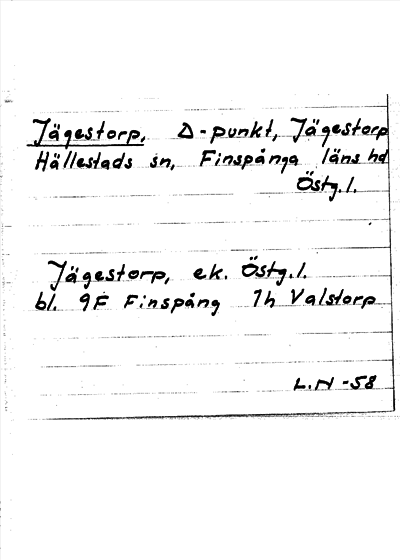 Jägestorp, Δ-punkt, Jägestorp
Hällestads sn, Finspånga läns hd
Östg.l.
Jägestorp, ek. Östg.l.
bl. 9F Finspång 7h Valstorp
L.N -58